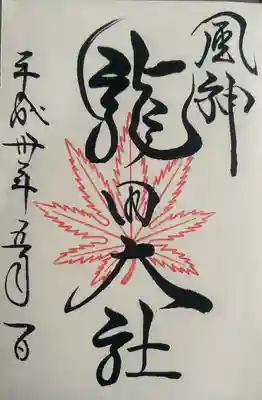 風神
龍田大社
平成卅年五月一日